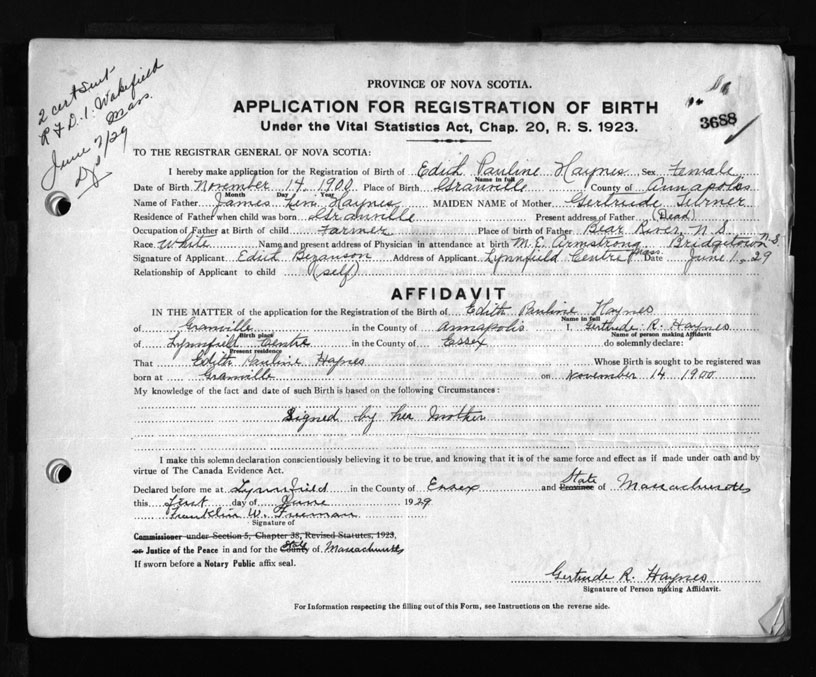 2 cert Sent
R F D. 1. Wakefield
Mass.
June 7/29
PROVINCE OF NOVA SCOTIA.
APPLICATION FOR REGISTRATION OF BIRTH
3688
Under the Vital Statistics Act, Chap. 20, R. S. 1923.
TO THE REGISTRAR GENERAL OF NOVA SCOTIA:
I hereby make application for the Registration of Birth of Edith Pauline Haynes Sex Female
Name in full
Date of Birth November 14 1900 Place of Birth Granville County of Annapolis
Month Day Year
Name of Father James Haynes MAIDEN NAME of Mother Gertrude
Residence of Father when child was born Granville Present address of Father (Dead)
Occupation of Father at Birth of child Farmer Place of birth of Father Bear River, N. S.
Race White Name and present address of Physician in attendance at birth M. E. Armstrong Bridgetown N.S.
Signature of Applicant Edith Bezanson Address of Applicant Lynnfield Centre Mass. Date June 1, 29
Relationship of Applicant to child (self)
AFFIDAVIT
IN THE MATTER of the application for the Registration of the Birth of Edith Pauline Haynes
Name in full
of Granville in the County of Annapolis I, Gertrude R. Haynes
Birth place Name of person making Affidavit
of Lynnfield Centre in the County of Essex do solemnly declare:
Present residence
That Edith Pauline Haynes Whose Birth is sought to be registered was
born at Granville on November 14 1900
My knowledge of the fact and date of such Birth is based on the following Circumstances:
Signed by her Mother
I make this solemn declaration conscientiously believing it to be true, and knowing that it is of the same force and effect as if made under oath and by
virtue of The Canada Evidence Act.
Declared before me at Lynnfield in the County of Essex and State Province of Massachusetts
this first day of June 1929
Franklin W. Freeman
Signature of
Commissioner under Section 5, Chapter 38, Revised Statutes, 1923,
or Justice of the Peace in and for the State County of Massachusetts
If sworn before a Notary Public affix seal.
Gertrude R. Haynes
Signature of Person making Affidavit.
For Information respecting the filling out of this Form, see Instructions on the reverse side.